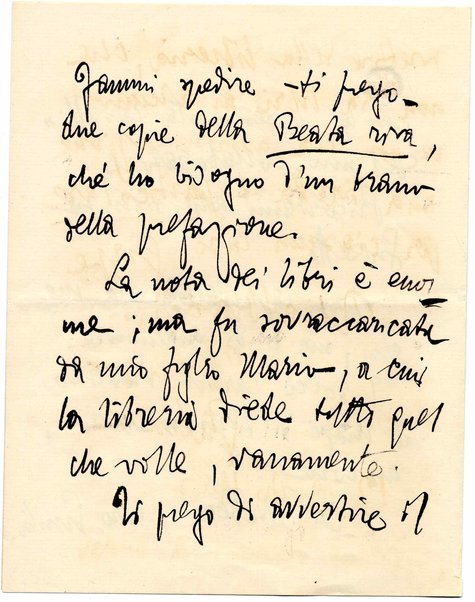 Fammi spedire – ti prego –
due copie della Beata riva,
ché ho bisogno d'un brano
della prefazione.
La nota dei libri è enor
me ; ma fu sovraccaricata
da mio figlio Mario, a cui
la libreria diede tutto quel
che volle, vanamente.
Ti prego di avvertire il